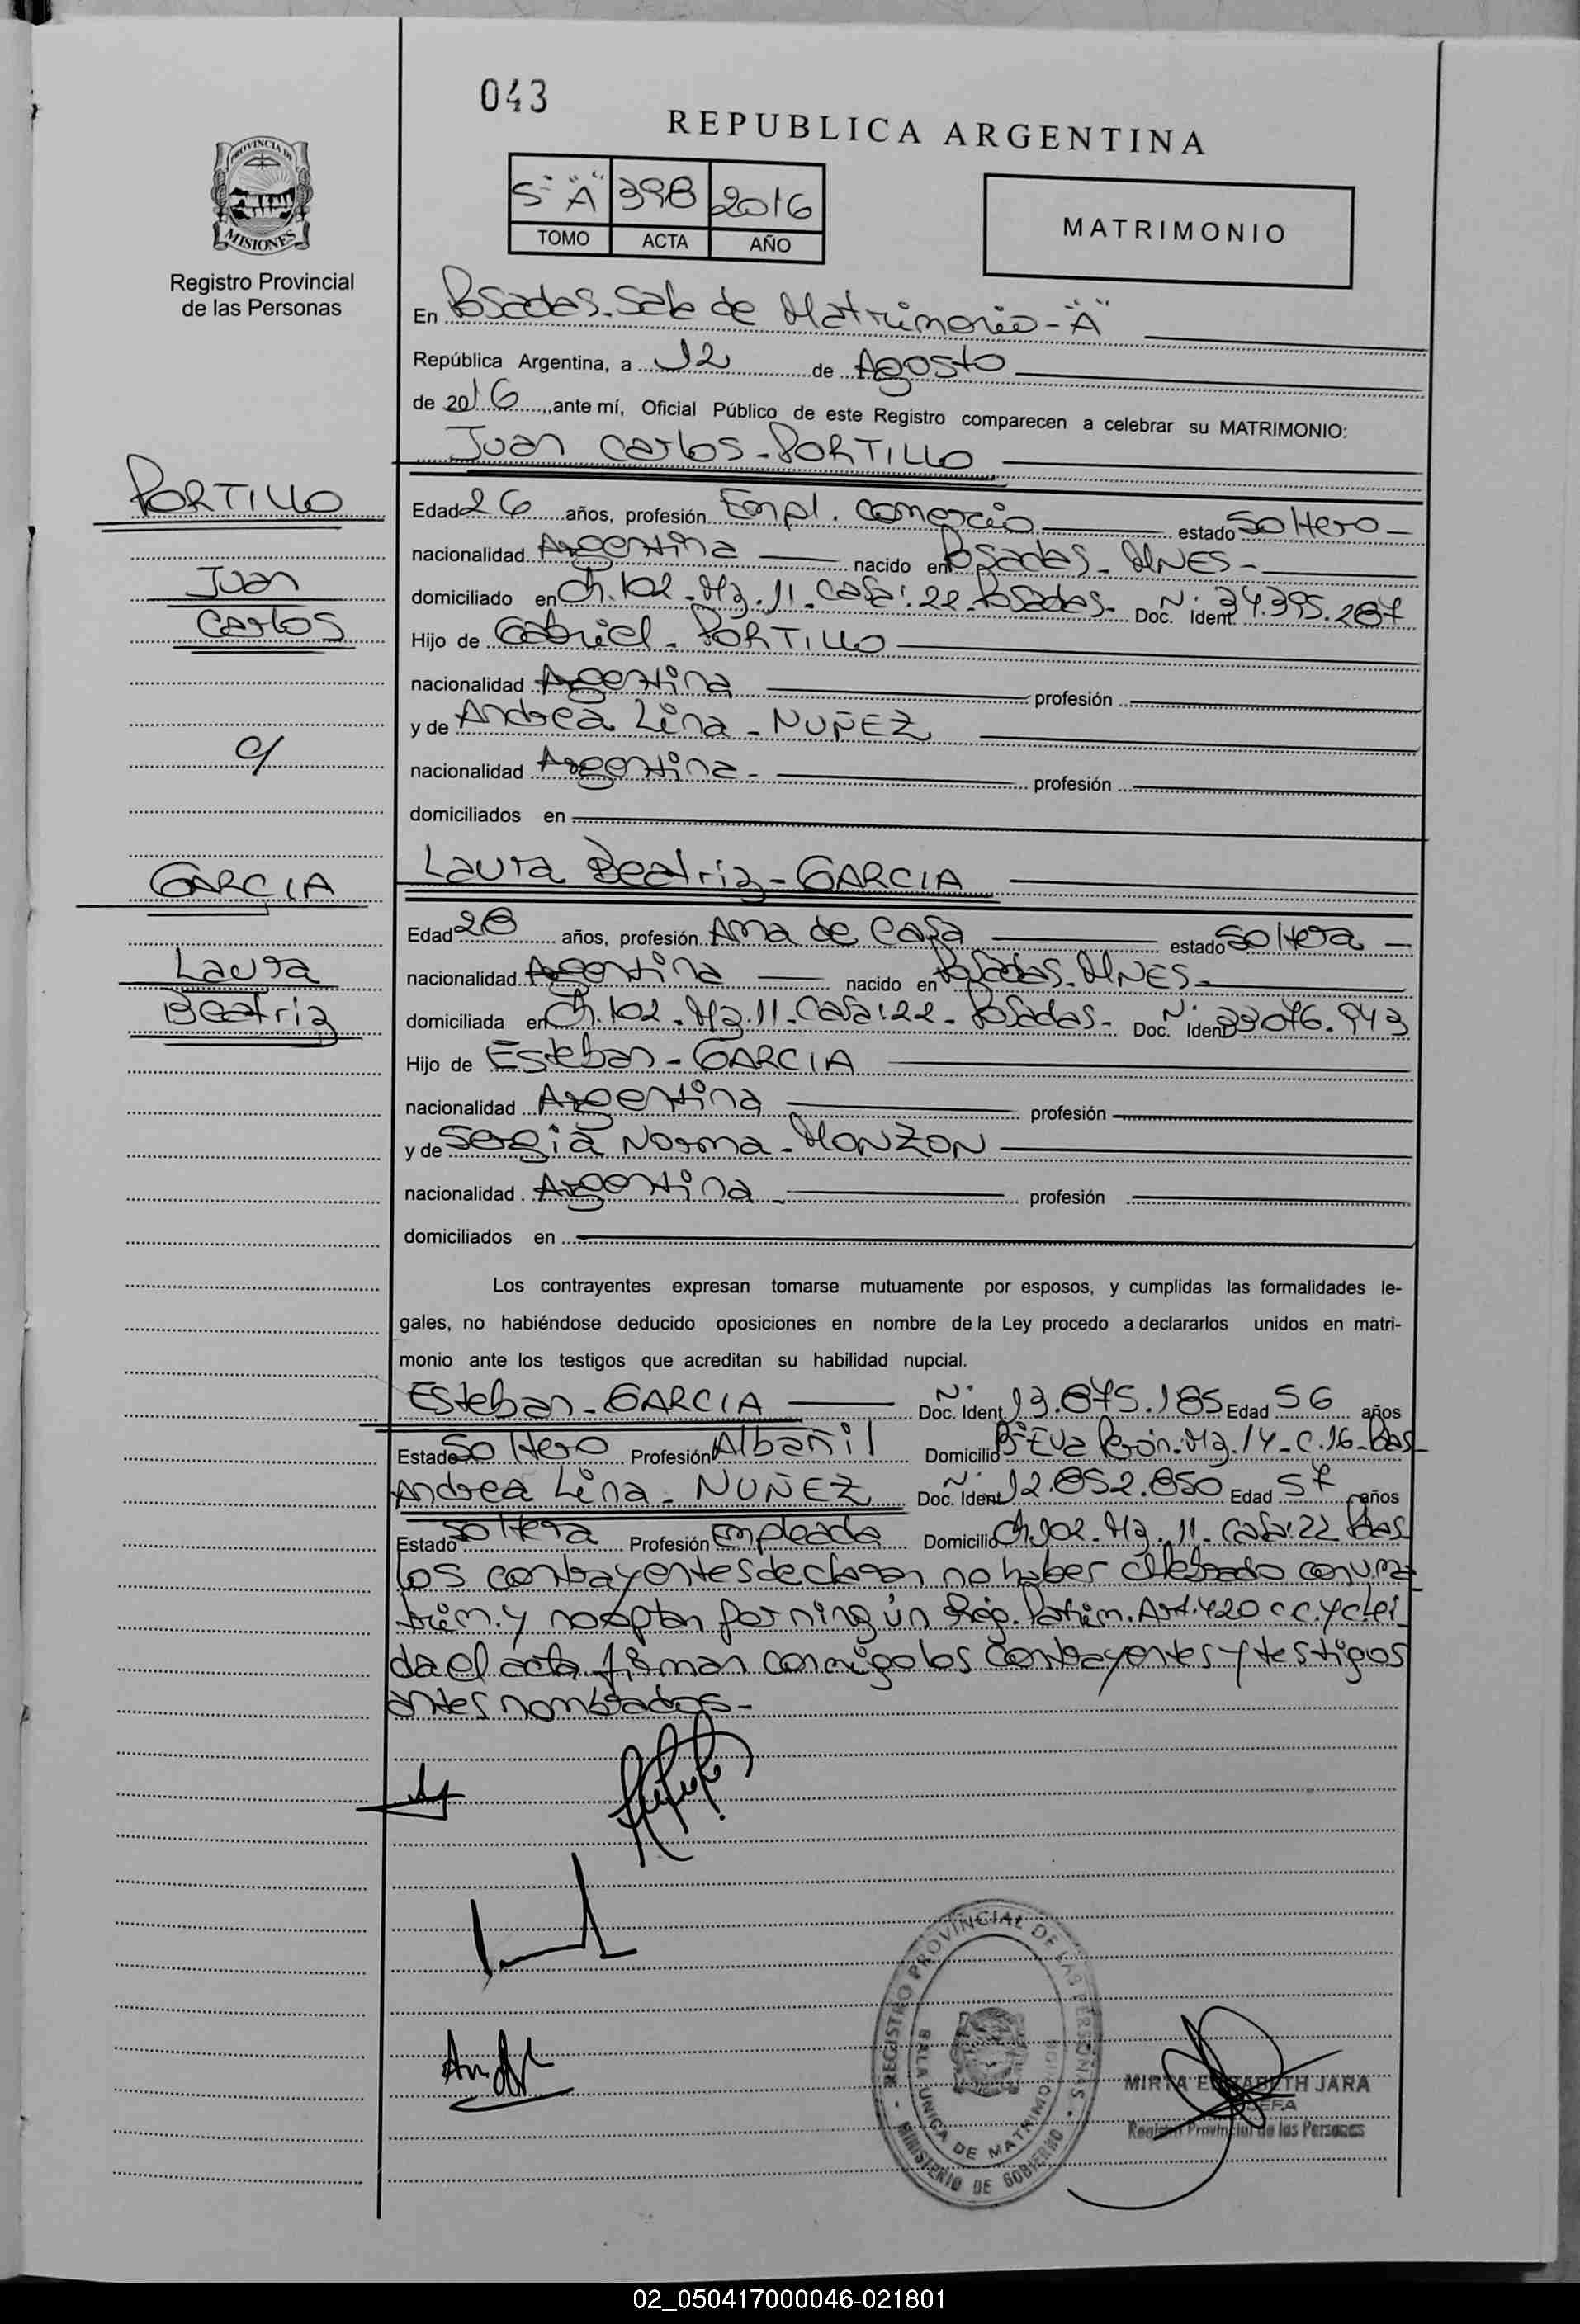 043
REPUBLICA ARGENTINA
PROVINCIA DE
MISIONES
Registro Provincial
de las Personas
S "A" 398 2016
TOMO ACTA AÑO
MATRIMONIO
En Posadas. Sala de Matrimonio - "A"
República Argentina, a 12 de Agosto
de 2016, ante mí, Oficial Público de este Registro comparecen a celebrar su MATRIMONIO:
Juan Carlos - PORTILLO
PORTILLO
Juan
Carlos
c/
GARCIA
Laura
Beatriz
Edad 26 años, profesión Empl. Comercio estado Soltero -
nacionalidad Argentina nacido en Posadas - MNES -
domiciliado en Ch. 102 - Mz. 11 - Casa: 22 - Posadas - Doc. Ident. N° 34.395.287
Hijo de Gabriel - PORTILLO
nacionalidad Argentina profesión
y de Andrea Lina - NUÑEZ
nacionalidad Argentina - profesión
domiciliados en
Laura Beatriz - GARCIA
Edad 28 años, profesión Ama de Casa estado Soltera -
nacionalidad Argentina nacido en Posadas - MNES -
domiciliada en Ch. 102 - Mz. 11 - Casa: 22 - Posadas - Doc. Ident. N° 33.076.943
Hijo de Esteban - GARCIA
nacionalidad Argentina profesión
y de Sergia Norma - MONZON
nacionalidad Argentina - profesión
domiciliados en
Los contrayentes expresan tomarse mutuamente por esposos, y cumplidas las formalidades le-
gales, no habiéndose deducido oposiciones en nombre de la Ley procedo a declararlos unidos en matri-
monio ante los testigos que acreditan su habilidad nupcial.
Esteban - GARCIA Doc. Ident N° 13.875.185 Edad 56 años
Estado Soltero Profesión Albañil Domicilio B° Eva Perón - Mz. 14 - C. 16 - Pdas
Andrea Lina - NUÑEZ Doc. Ident N° 12.852.850 Edad 57 años
Estado Soltera Profesión Empleada Domicilio Ch. 102 - Mz. 11 - Casa: 22 Pdas
Los contrayentes declaran no haber celebrado conv. ma
trim. y no optan por ningún Rég. Patrim. Art. 420 C.C.y C. Leí
da el acta firman conmigo los contrayentes y testigos
antes nombrados -
REGISTRO PROVINCIAL DE LAS PERSONAS
SALA UNICA DE MATRIMONIO
MINISTERIO DE GOBIERNO
MIRTA ELIZABETH JARA
JEFA
Registro Provincial de las Personas
02_050417000046-021801